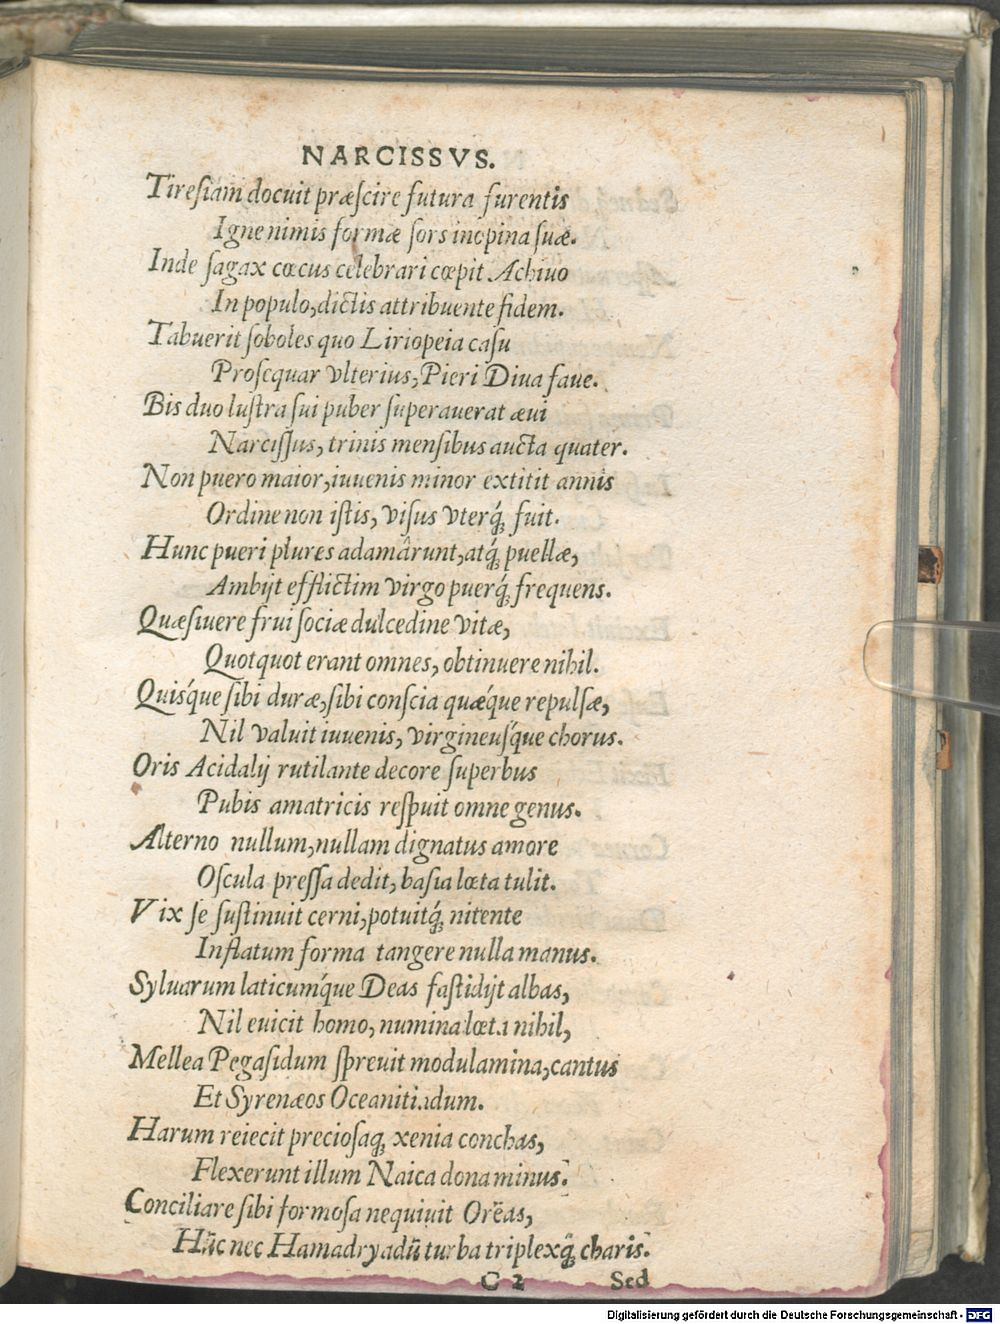 NARCISSVS.
Tiresiam docuit præscire futura furentis
Igne nimis formæ sors inopina suæ.
Inde sagax cœcus celebrari cœpit Achiuo
In populo, dictis attribuente fidem.
Tabuerit soboles quo Liriopeia casu
Prosequar vlterius, Pieri Diua faue.
Bis duo lustra sui puber superauerat æui
Narcissus, trinis mensibus aucta quater.
Non puero maior, iuuenis minor extitit annis
Ordine non istis, visus vterq́; fuit.
Hunc pueri plures adamârunt, atq́; puellæ,
Ambijt efflictim virgo puerq́; frequens.
Quæsiuere frui sociæ dulcedine vitæ,
Quotquot erant omnes, obtinuere nihil.
Quisq́ue sibi duræ, sibi conscia quæq́ue repulsæ,
Nil valuit iuuenis, virgineusq́ue chorus.
Oris Acidalij rutilante decore superbus
Pubis amatricis respuit omne genus.
Alterno nullum, nullam dignatus amore
Oscula pressa dedit, basia lœta tulit.
Vix se sustinuit cerni, potuitq́; nitente
Inflatum forma tangere nulla manus.
Syluarum laticumq́ue Deas fastidijt albas,
Nil euicit homo, numina lœta nihil,
Mellea Pegasidum spreuit modulamina, cantus
Et Syrenæos Oceanitidum.
Harum reiecit preciosaq; xenia conchas,
Flexerunt illum Naica dona minus.
Conciliare sibi formosa nequiuit Orëas,
Hūc nec Hamadryadū turba triplexq́; charis.
C 2 Sed
Digitalisierung gefördert durch die Deutsche Forschungsgemeinschaft - DFG